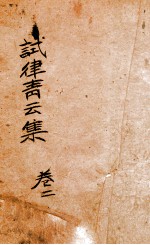 試律青云集
卷二